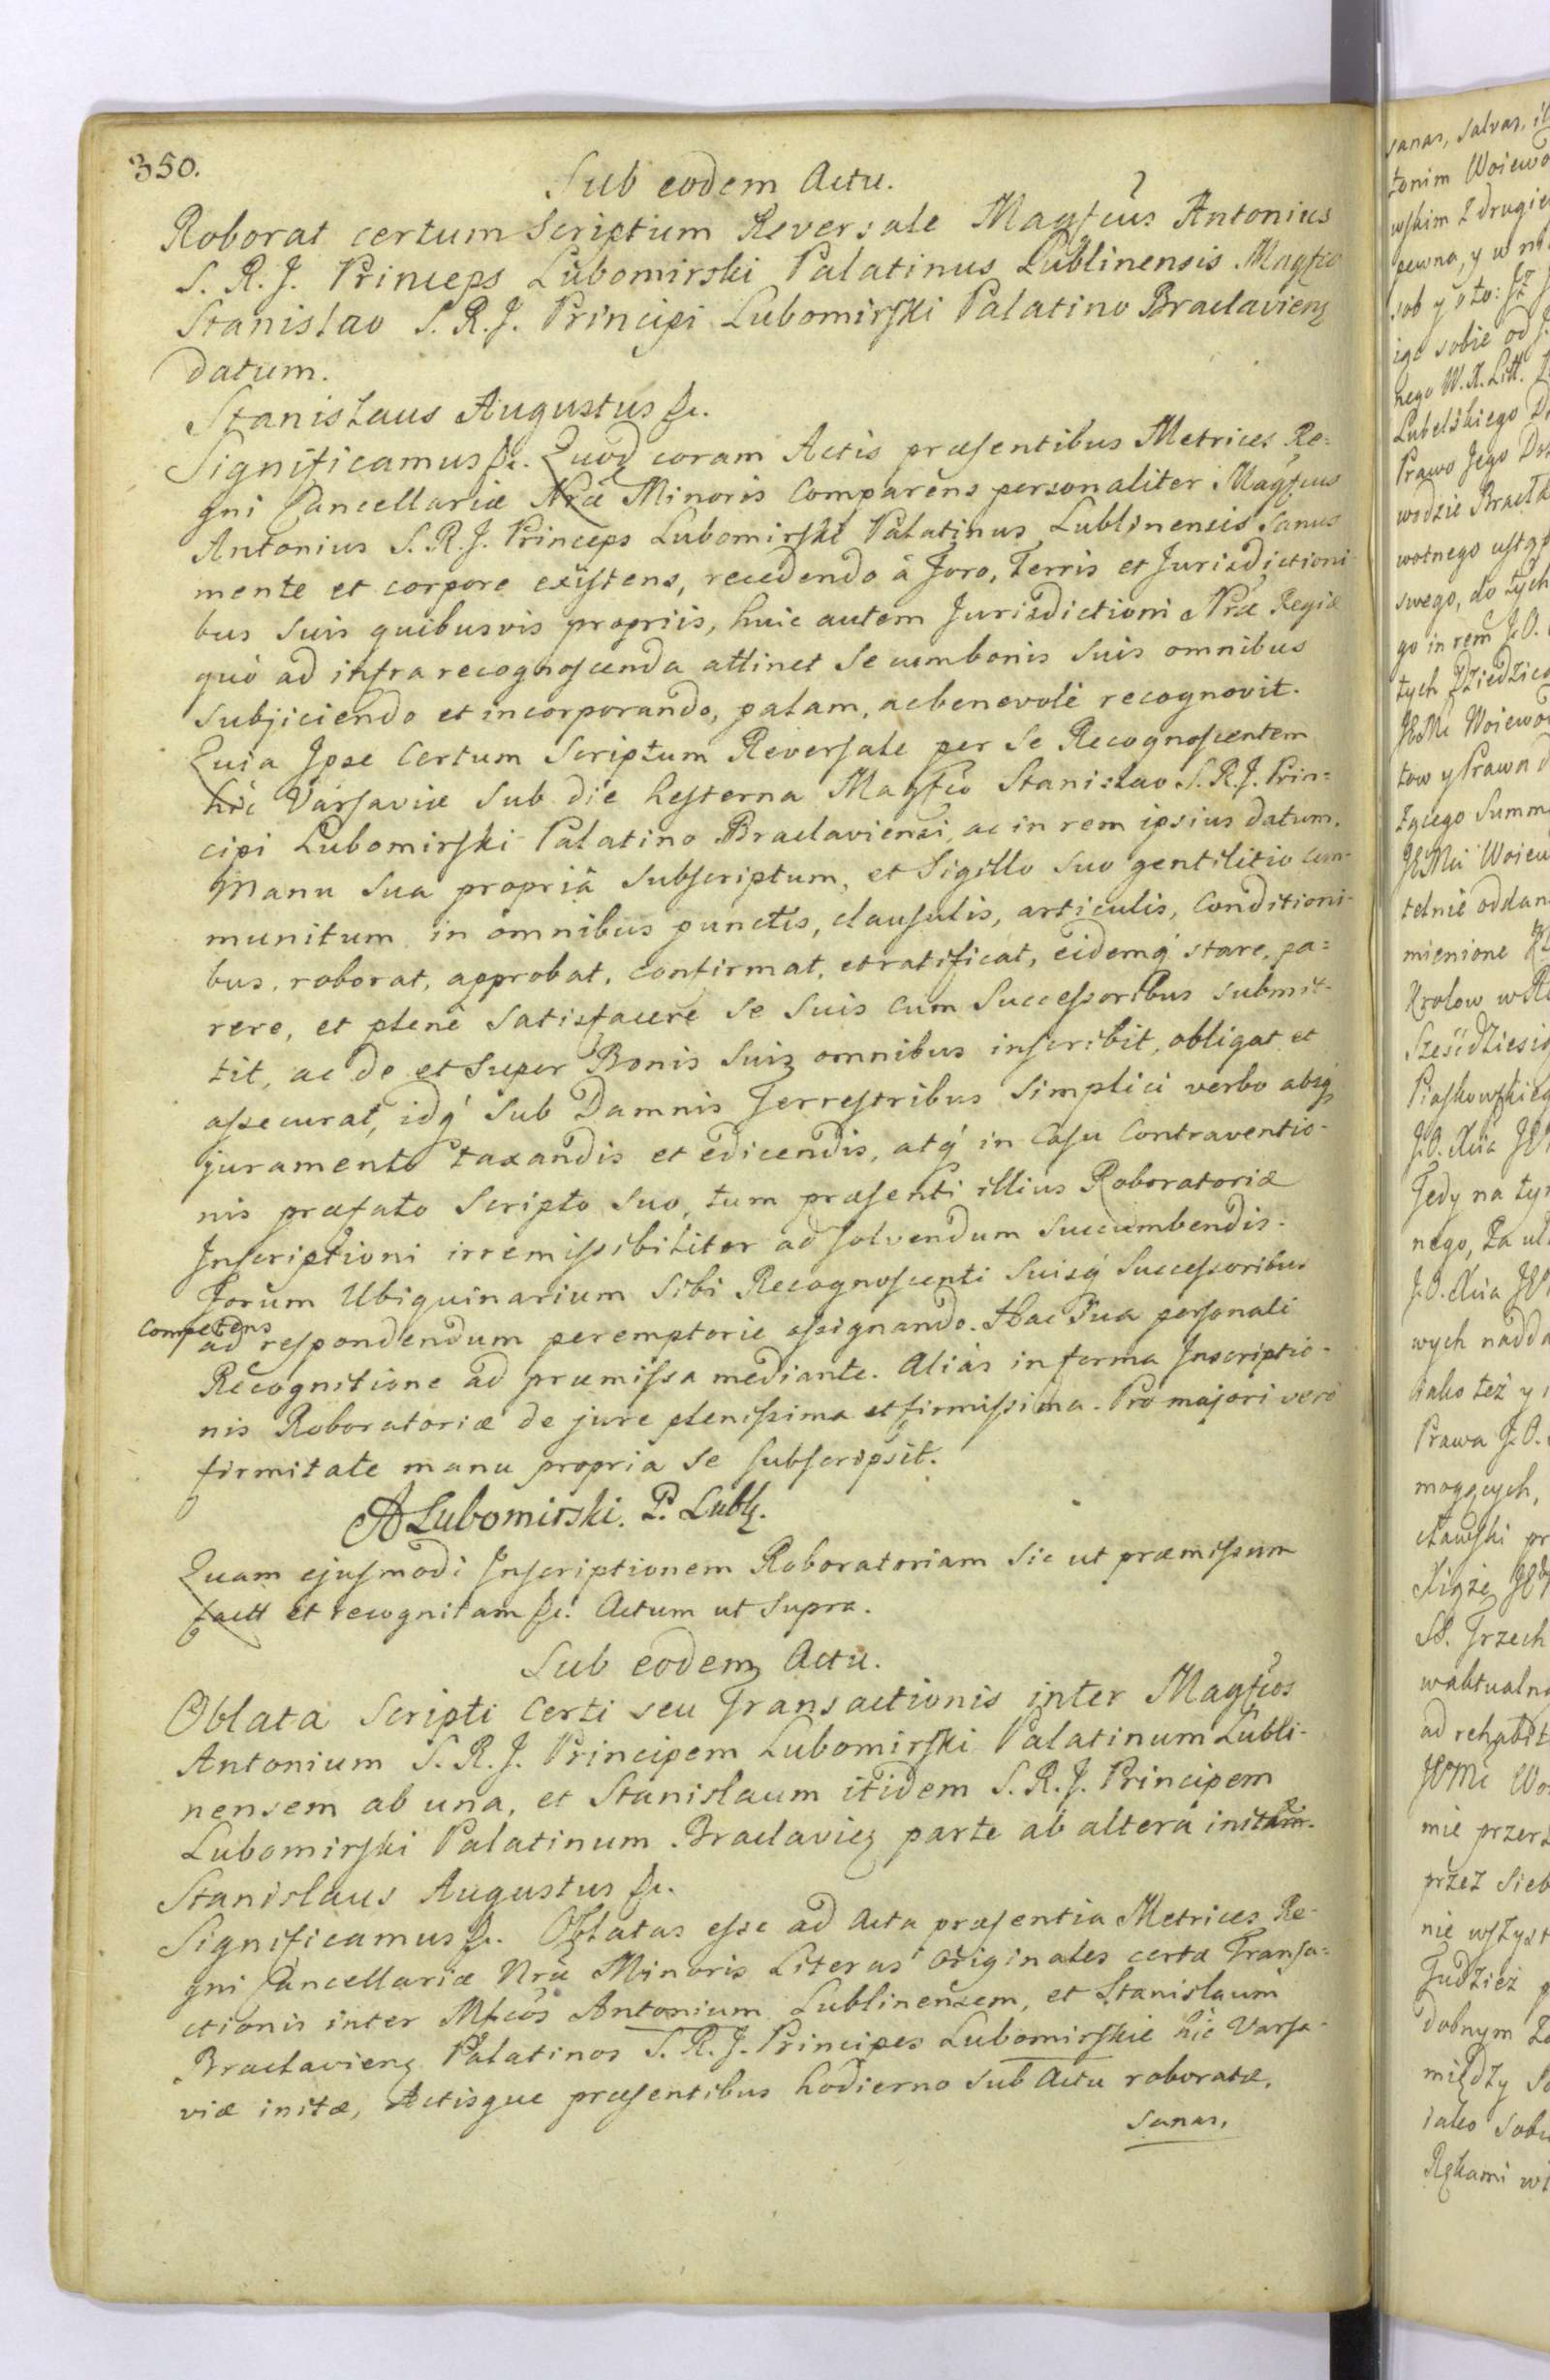 350.
Sub eodem Actu.
Roborat certum Scriptum Reversale Magfcus Antonius
S. R. J. Princeps Lubomirski Palatinus Lublinensis Magfco
Stanislao S. R. J. Principi Lubomirski Palatino Braclaviens
datum.
Stanislaus Augustus &c.
Significamus &c. Quod coram Actis præsentibus Metrices Re=
gni Cancellariæ Nræ Minoris Comparens personaliter Magfcus
Antonius S. R. J. Princeps Lubomirski Palatinus Lublinensis Sanus
mente et corpore existens, recedendo à Foro, Terris et Jurisdictioni-
bus suis quibusvis propriis, huic autem Jurisdictioni Nræ Regiæ
quò ad infra recognoscenda attinet Se cum bonis suis omnibus
subjiciendo et incorporando, palam, ac benevolè recognovit.
Quia Ipse Certum Scriptum Reversale per Se Recognoscentem
hic Varsaviæ Sub die hesterna Magfco Stanislao S. R. J. Prin=
cipi Lubomirski Palatino Braclaviensi, ac in rem ipsius datum,
Manu Sua propriâ Subscriptum, et Sigillo Suo gentilitio com-
munitum in omnibus punctis, clausulis, articulis, Conditioni-
bus, roborat, approbat, confirmat, et ratificat, eidemq stare, pa=
rere, et plenè Satisfacere Se Suis Cum Successoribus Submit-
tit, ac de et Super Bonis Suis omnibus inscribit, obligat et
assecurat, idq Sub Damnis Terrestribus Simplici verbo absq
juramento taxandis et edicendis, atq in Casu Contraventio-
nis præfato Scripto Suo, tum præsenti illius Roboratoriæ
Inscriptioni irremissibiliter ad solvendum succumbendis.
Forum Ubiquinarium Sibi Recognoscenti Suisq Successoribus
Competens
ad respondendum peremptorie assignando. Hac Sua personali
Recognitione ad præmissa mediante. Aliàs in forma Inscriptio-
nis Roboratoriæ de jure plenissima et firmissima. Pro majori verò
firmitate manu propria Se Subscripsit.
A Lubomirski. P. Lubl.
Quam ejusmodi Inscriptionem Roboratoriam Sic ut præmissum
factt et recognitam &c. Actum ut Supra.
Sub eodem Actu.
Oblata Scripti Certi seu Transactionis inter Magfcos
Antonium S. R. J. Principem Lubomirski Palatinum Lubli-
nensem ab una, et Stanislaum itidem S. R. J. Principem
Lubomirski Palatinum Braclavien parte ab altera
Stanislaus Augustus &c.
Significamus &c. Oblatas esse ad Acta præsentia Metrices Re-
gni Cancellariæ Nræ Minoris Literas Originales certæ Transa=
ctionis inter Mfcos Antonium Lublinensem, et Stanislaum
Braclaviens Palatinos S. R. J. Principes Lubomirskie hic Varsa-
viæ initæ, Actisque præsentibus hodierno Sub Actu roboratæ.
Sanas,